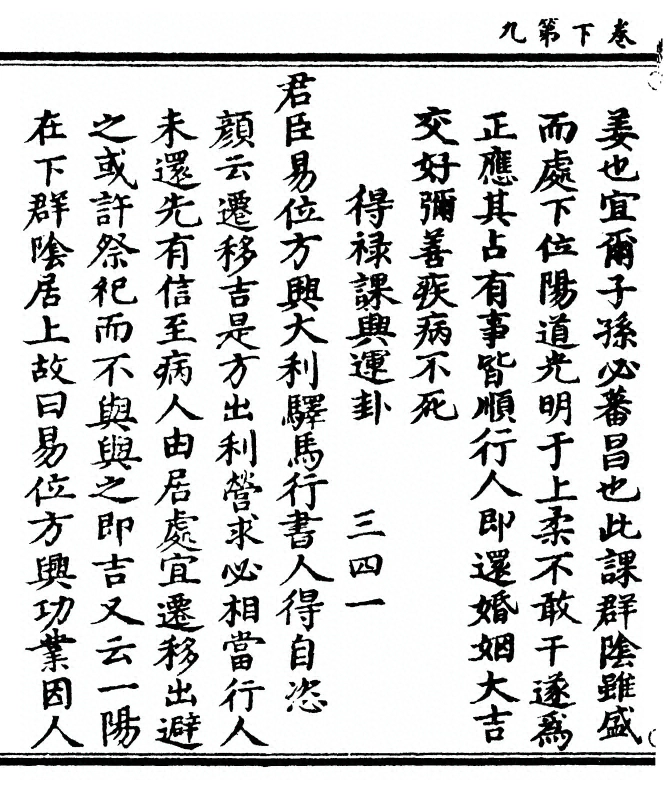 卷下第九
姜也宜爾子孫必蕃昌也此課群陰雖盛
而處下位陽道光明于上柔不敢干遂爲
正應其占有事皆順行人即還婚姻大吉
交好彌善疾病不死
得禄課興運卦 三四一
君臣易位方興大利驛馬行書人得自恣
顔云遷移吉是方出利營求必相當行人
未還先有信至病人由居處宜遷移出避
之或許祭祀而不與與之即吉又云一陽
在下群陰居上故曰易位方興功業因人